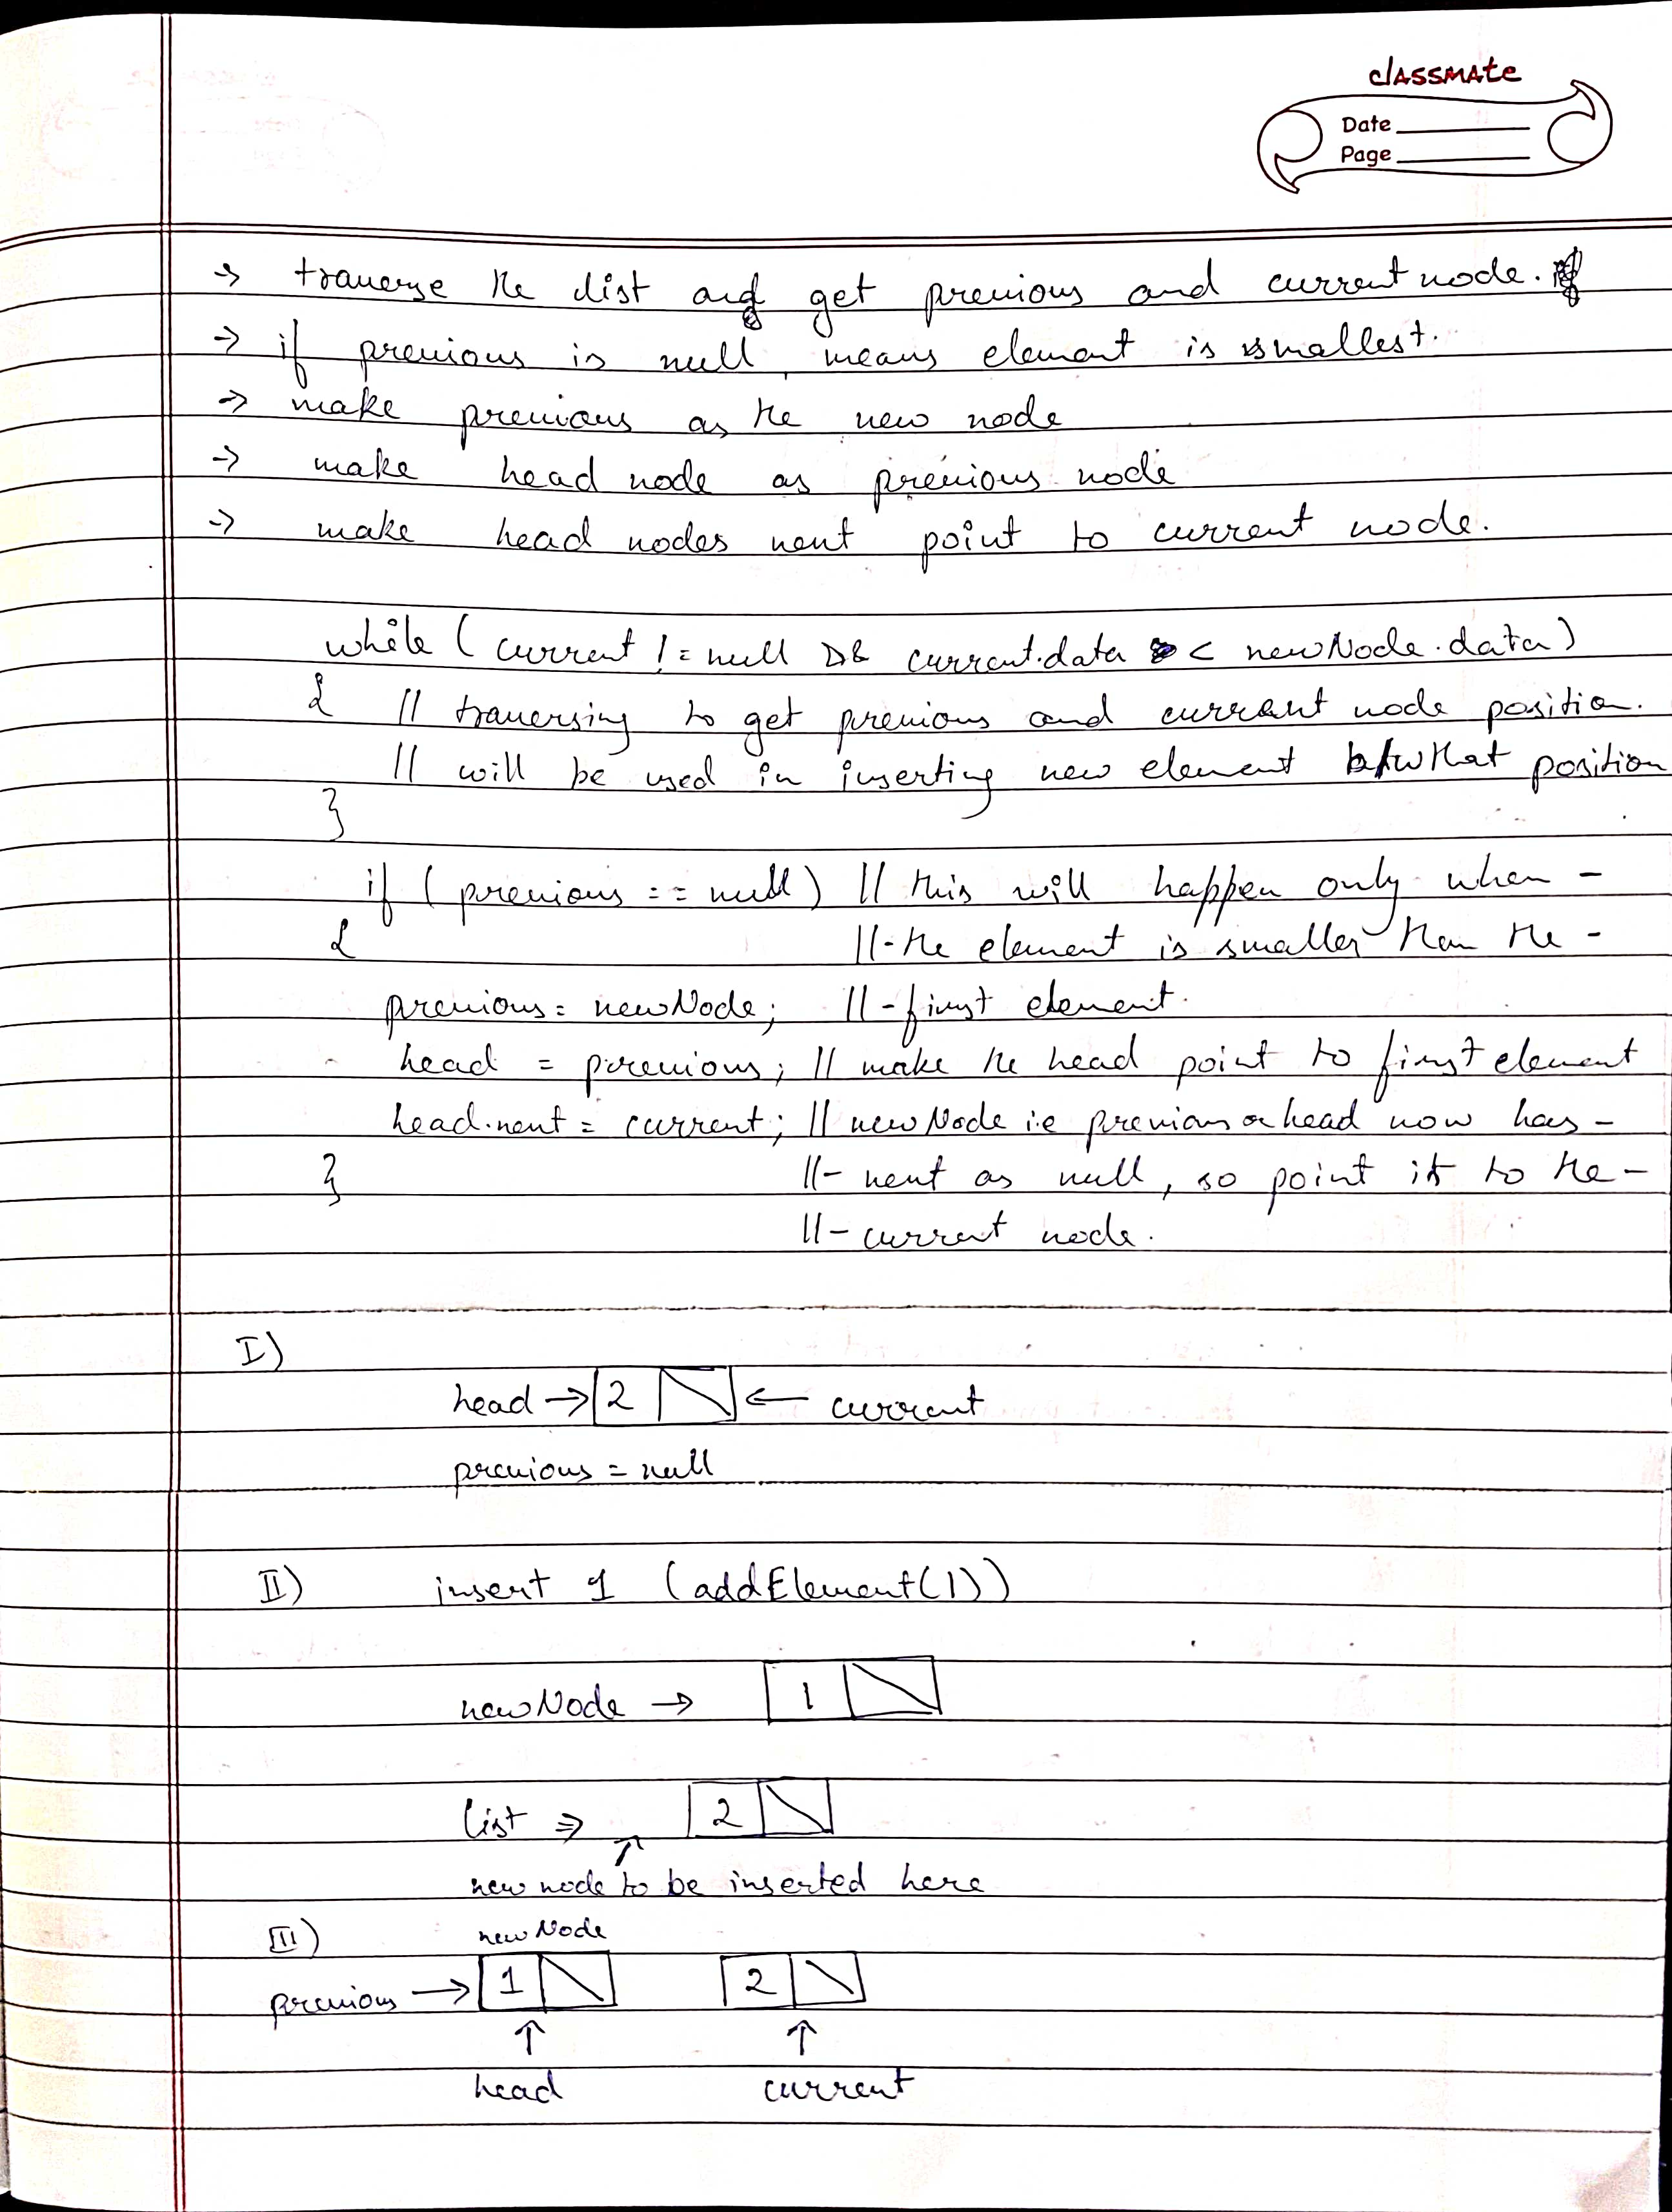 classmate
Date
Page
→ traverse the list and get previous and current node.
→ if previous is null, means element is smallest.
→ make previous as the new node
→ make head node as previous node
→ make head nodes next point to current node.
while ( current != null && current.data < newNode.data)
{ // traversing to get previous and current node position.
// will be used in inserting new element b/w that position
}
if ( previous == null) // this will happen only when -
{ //-the element is smaller than the -
previous = newNode; //-first element.
head = previous; // make the head point to first element
head.next = current; // newNode i.e previous or head now has -
} //- next as null, so point it to the -
//- current node.
I)
head → 2 ← current
previous = null
II) insert 1 (addElement(1))
newNode → 1
list ⇒ 2
↑
new node to be inserted here
III) newNode
previous → 1 2
↑ ↑
head current